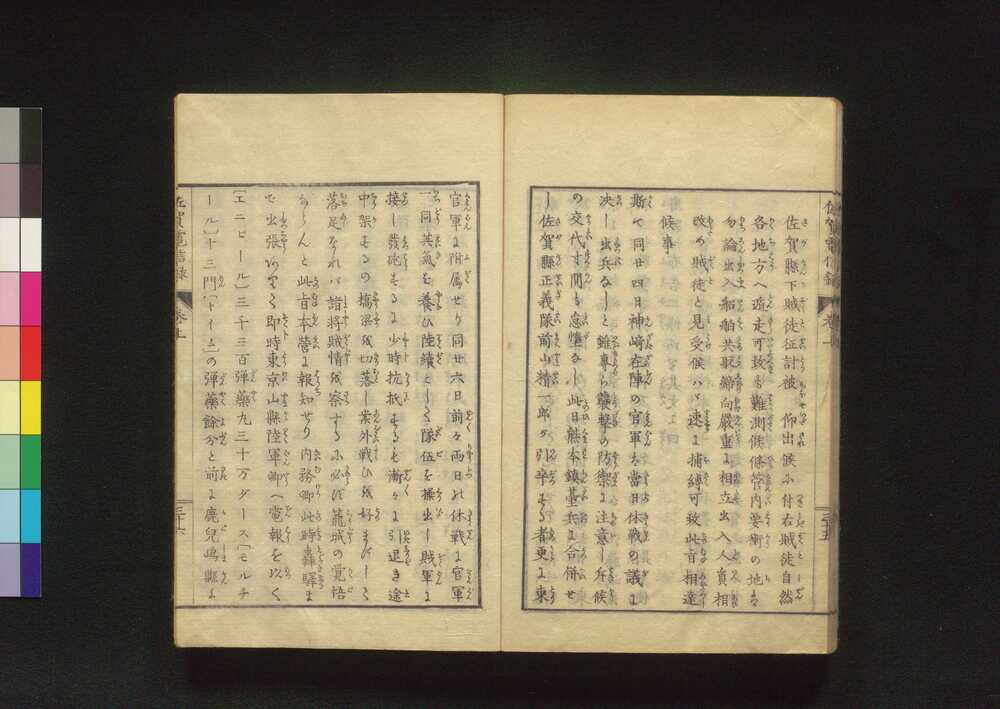 佐賀縣下賊徒征討被　仰出候ニ付右賊徒自然
各地方へ遁走可致も難測候條管内要衝の地ハ
勿論出入船舶共取締向嚴重ニ相立出入人員相
改め賊徒と見受候ハヾ速ニ捕縛可致此旨相達
候事
斯て同廿四日神﨑在陣の官軍ハ當日休戰の議に
决し出兵なしと雖專ら襲撃の防禦に注意し斥候
の交代寸間も怠惰なし此日熊本鎮臺兵に合併せ
し佐賀縣正義隊前山精一郎が引卒する者更に東
佐賀電信録　巻上　三十五
官軍に附屬せり同廿六日前々両日の休戰に官軍
一同英氣を養ひ陸續として隊伍を操出し賊軍に
接し發砲するに少時抗抵するも漸々に引退き途
中架するの橋梁を切落し案外戰ひを好まずして
落足なれバ諸將賊情を察するに必ず籠城の覚悟
ならんと此旨本營に報知せり内務卿此時轟驛ま
で出張ありて即時東京山縣陸軍卿へ電報を以て
［エニピール］三千三百彈藥九三十万ダース［モルチ
ール］十三門［トイ子］の彈藥餘分と前に鹿兒嶋縣に
佐賀電信録　巻上　三十六